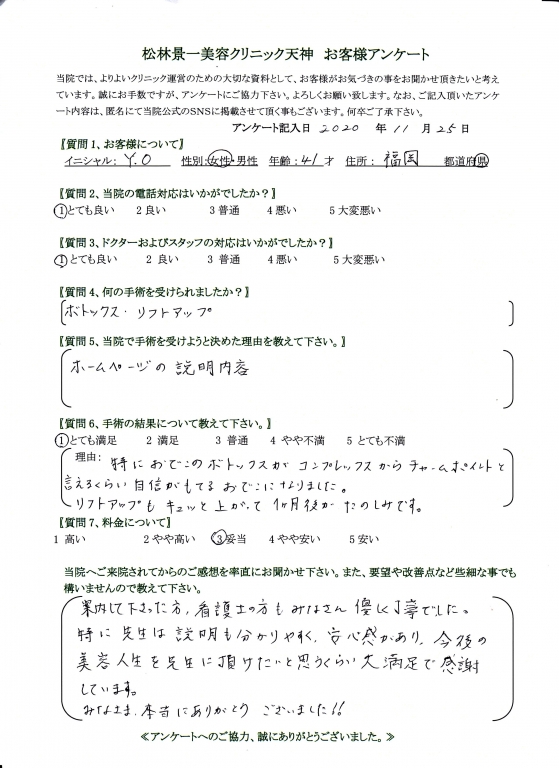 松林景一美容クリニック天神 お客様アンケート
当院では、よりよいクリニック運営のための大切な資料として、お客様がお気づきの事をお聞かせ頂きたいと考え
ています。誠にお手数ですが、アンケートにご協力下さい。よろしくお願い致します。なお、ご記入頂いたアンケ
ート内容は、匿名にて当院公式のSNSに掲載させて頂く事もございます。何卒ご了承下さい。
アンケート記入日 2020 年 11 月 25日
〖質問1、お客様について〗
イニシャル: Y.O 性別:女性・男性 年齢:41才 住所: 福岡 都道府県
〖質問2、当院の電話対応はいかがでしたか?〗
1とても良い 2良い 3普通 4悪い 5大変悪い
〖質問3、ドクターおよびスタッフの対応はいかがでしたか?〗
1とても良い 2 良い 3 普通 4悪い 5大変悪い
〖質問4、何の手術を受けられましたか?〗
ボトックス・リフトアップ
〖質問5、当院で手術を受けようと決めた理由を教えて下さい。〗
ホームページの説明内容
〖質問6、手術の結果について教えて下さい。〗
1とても満足 2 満足 3 普通 4 やや不満 5 とても不満
理由: 特におでこのボトックスがコンプレックスからチャームポイントと
言えるくらい自信がもてるおでこになりました。
リフトアップもキュッと上がって1か月後がたのしみです。
〖質問7、料金について〗
1 高い 2やや高い 3妥当 4やや安い 5安い
当院へご来院されてからのご感想を率直にお聞かせ下さい。また、要望や改善点など些細な事でも
構いませんので教えて下さい。
案内して下さった方、看護士の方もみなさん優しく丁寧でした。
特に先生は説明も分かりやすく、安心感があり、今後の
美容人生を先生に頂けたいと思うくらい大満足で感謝
しています。
みなさま、本当にありがとうございました!!
≪アンケートへのご協力、誠にありがとうございました。≫